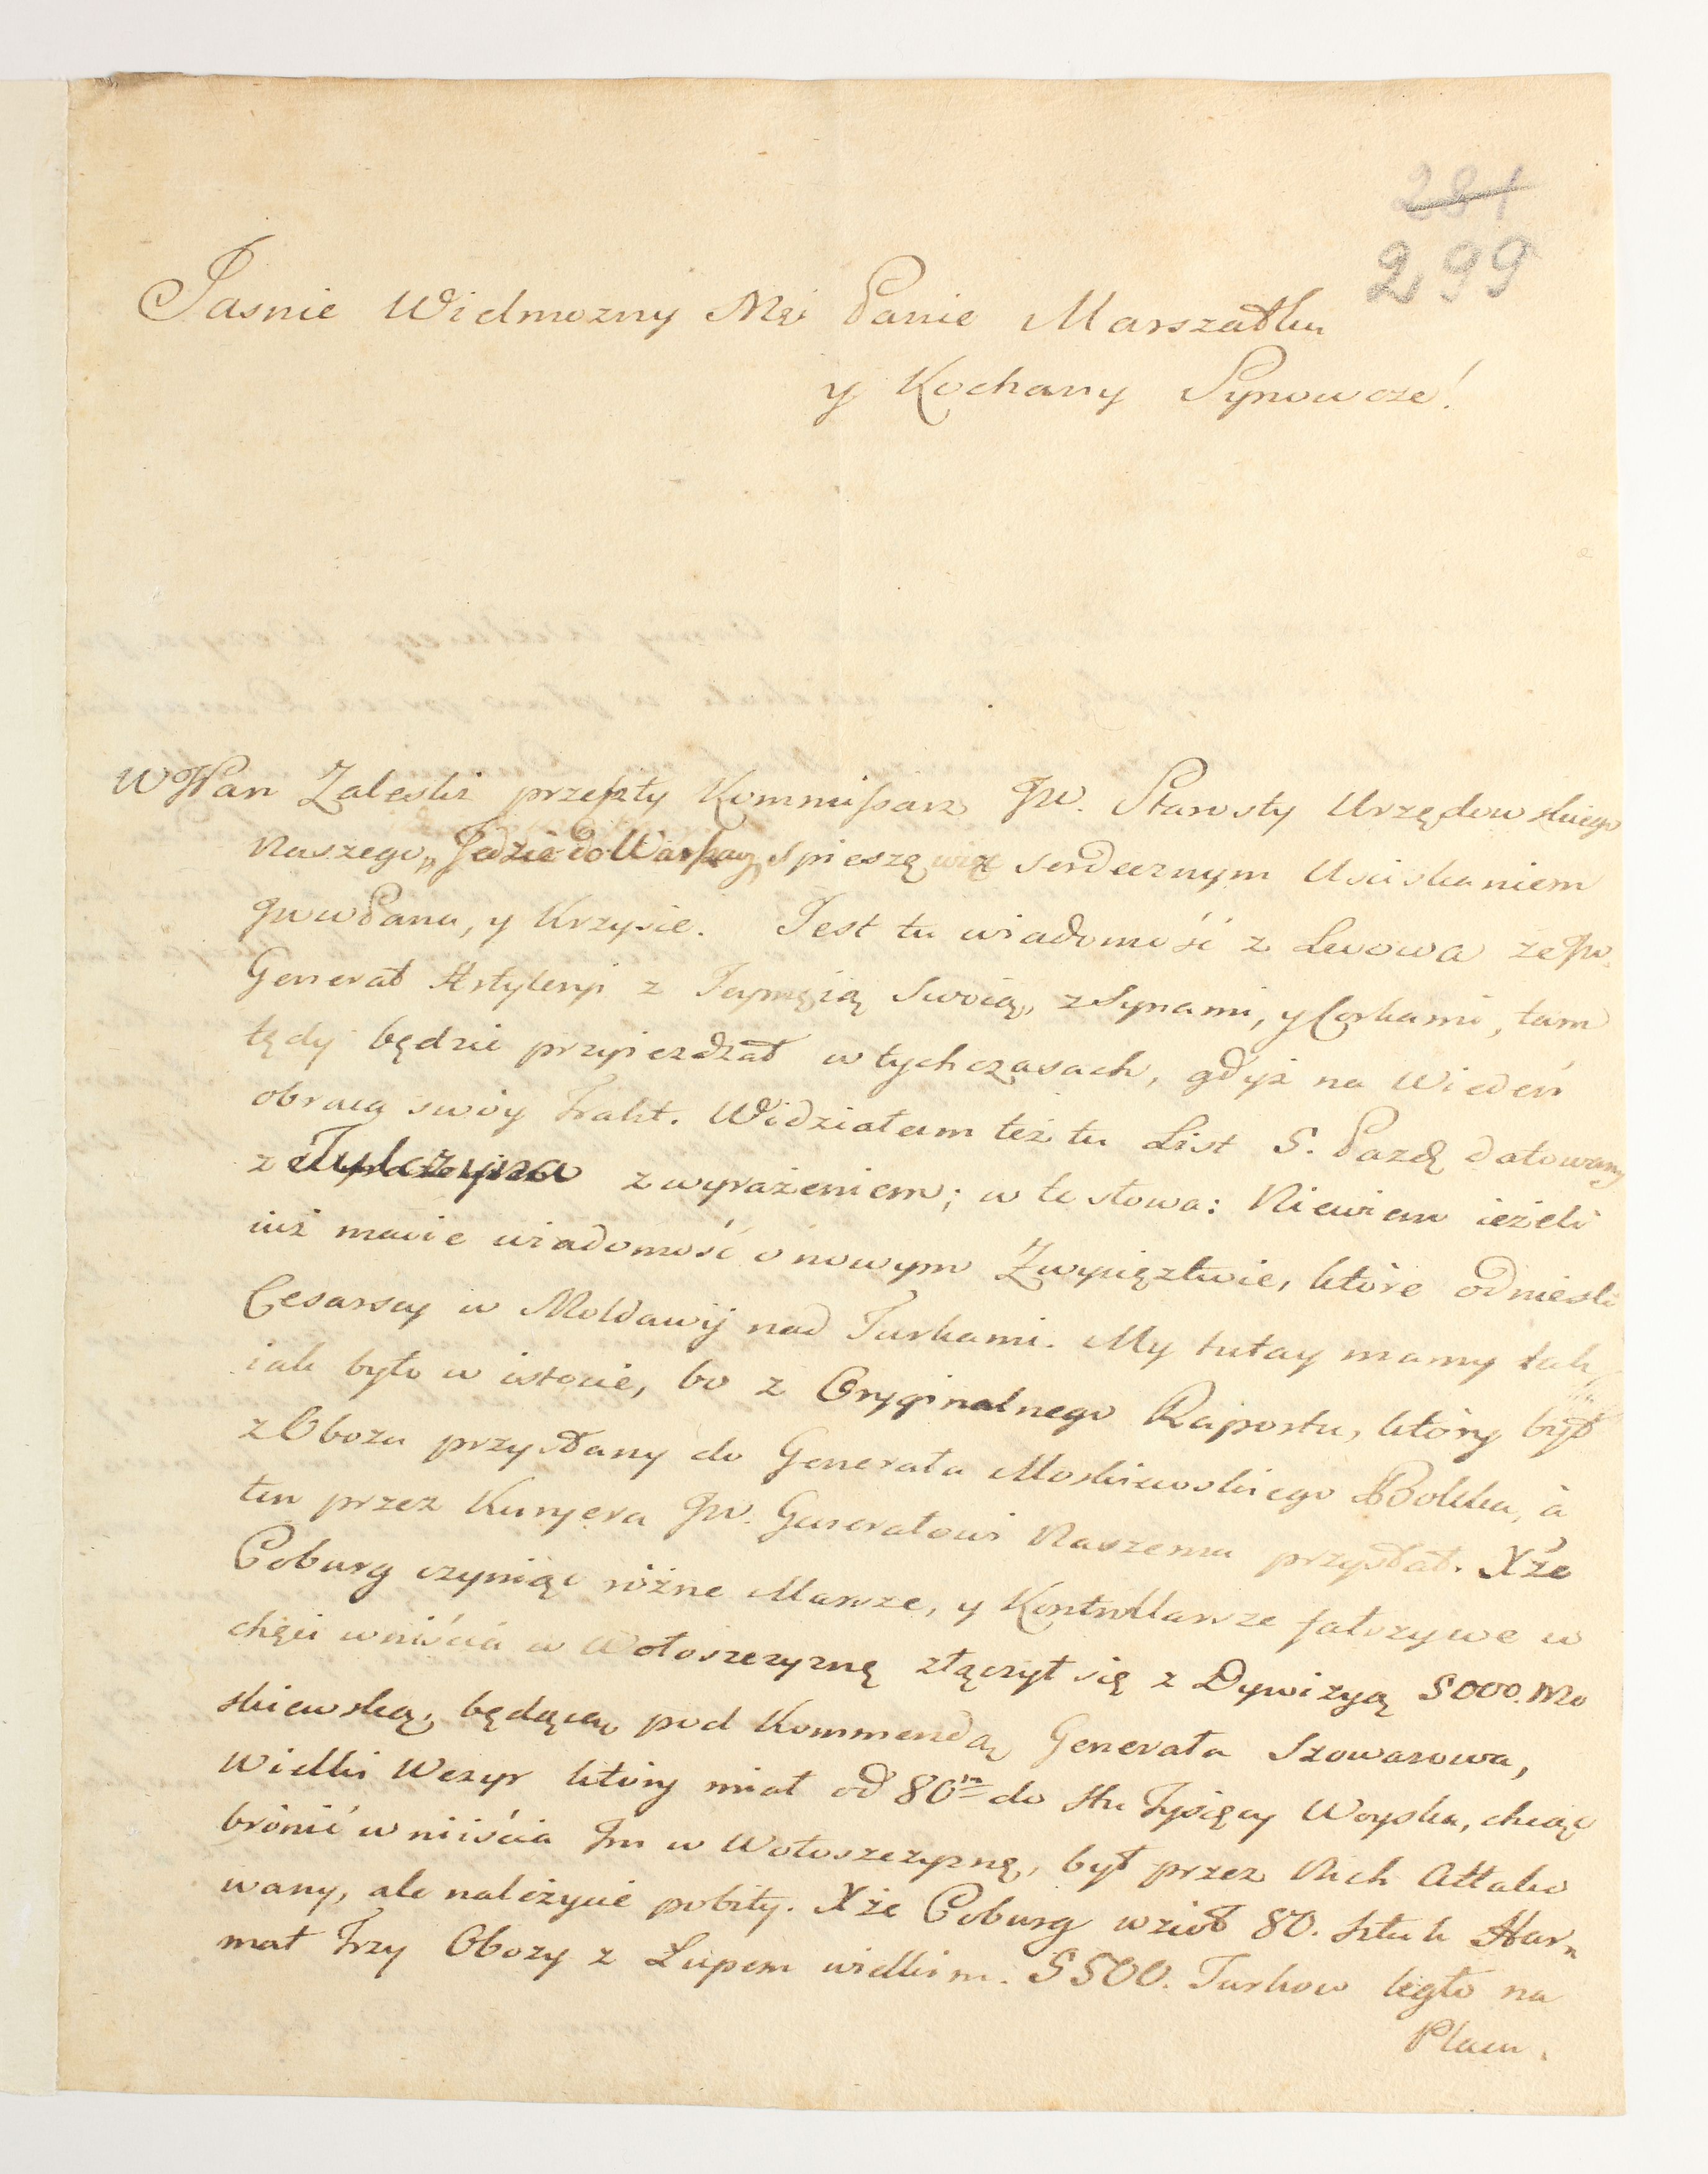 281
299
Jasnie Wielmozny Mći Panie Marszałku
y Kochany Synowcze!
WJPan Zaleski przeszły Kommissarz JW. Starosty Urzędowskiego
Naszego, Jedzie do Warszawy, spieszę więc serdecznym Usciskaniem
JWWPana, y Krzysie. Jest tu wiadomość z Lwowa ze JW.
Generał Artyleryi z Jeymcią Swoią, z Synami, y Corkami, tam
tędy będzie przejezdzał w tych czasach, gdyż na Wiedeń
obraca swóy Trakt. Widziałem też tu List 5. Pazdź datowany
z Tulczyna z wyrażeniem; w te słowa: Niewiem ieżeli
iuż macie wiadomość o nowym Zwycięztwie, które odniesli
Cesarscy w Moldawij nad Turkami. My tutay mamy tak,
iak było w istocie, bo z Oryginalnego Raportu, który był
z Obozu przysłany do Generała Moskiewskiego, à
ten przez Kuryera JW. Generałowi Naszemu przysłał. Xże
Coburg czyniąc różne Marsze, y KontrMarsze fałszywe w
chęci wniścia w Wołoszczyznę złączył się z Dywizyą 5000. Mo
skiewską, będącą pod Kommendą Generała Szowarowa,
Wielki Wezyr który miał od 80m do stu Tysięcy Woyska, chcąc
brónić wniiścia Im w Wołoszczyznę, był przez Nich Attako
wany, ale należycie pobity. Xże Coburg wzioł 80. sztuk Har„
mat Trzy Obozy z Łupem wielkim. 5500. Turkow legło na
Placu.